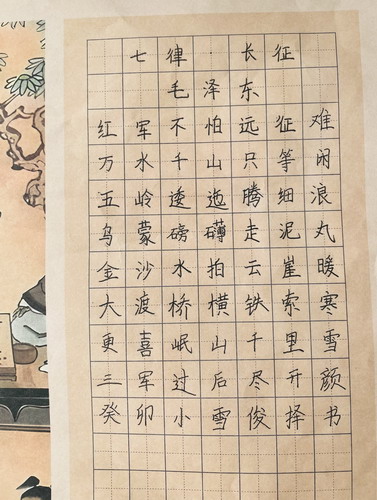 七律·长征
毛泽东
红军不怕远征难
万水千山只等闲
五岭逶迤腾细浪
乌蒙磅礴走泥丸
金沙水拍云崖暖
大渡桥横铁索寒
更喜岷山千里雪
三军过后尽开颜
癸卯小雪俊择书